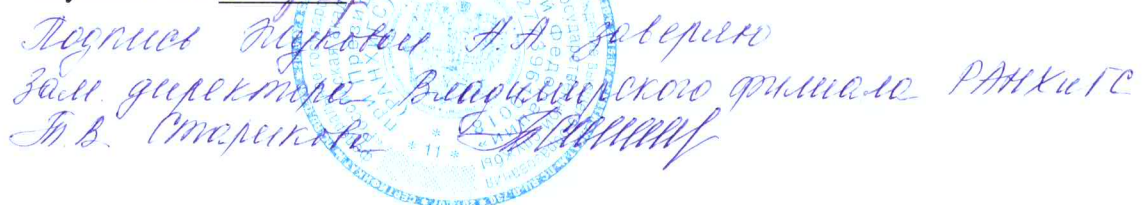 Подпись Жуковой А.А заверяю
Зам. директора Владимирского филиала РАНХиГС
Т.В. Старикова
* 11 *